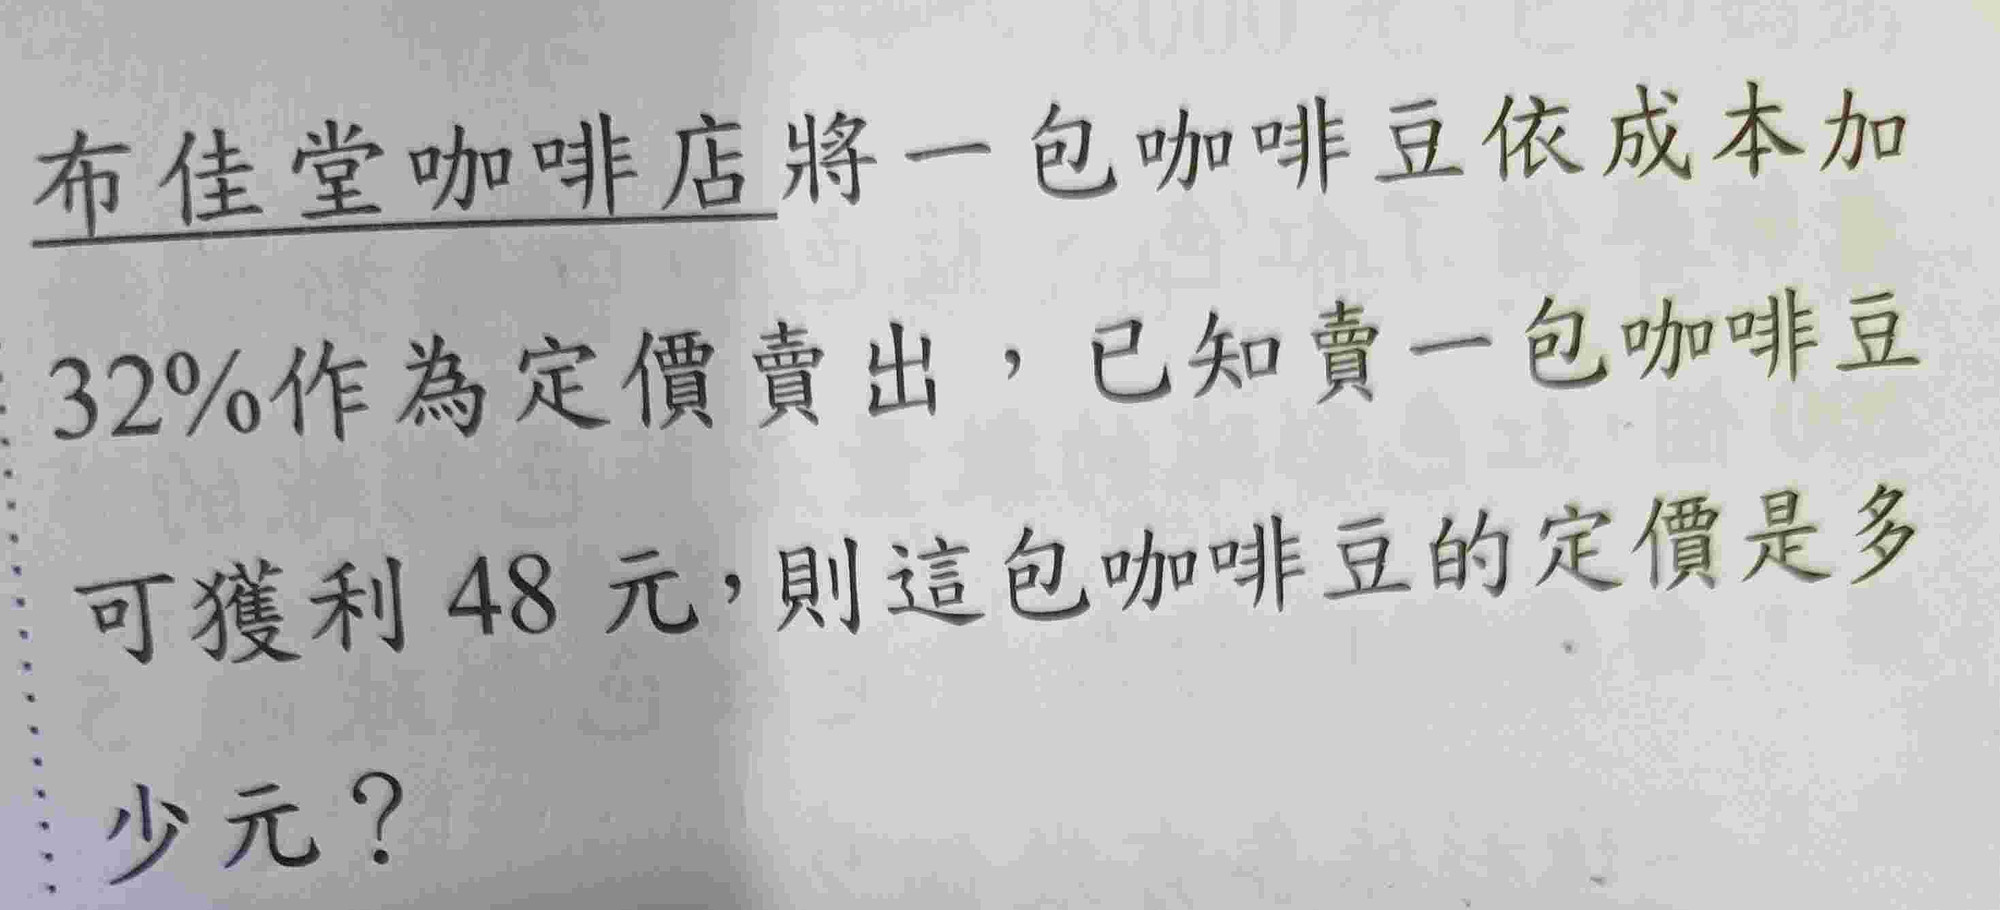 布佳堂咖啡店將一包咖啡豆依成本加
32%作為定價賣出，已知賣一包咖啡豆
可獲利 48 元，則這包咖啡豆的定價是多
少元？